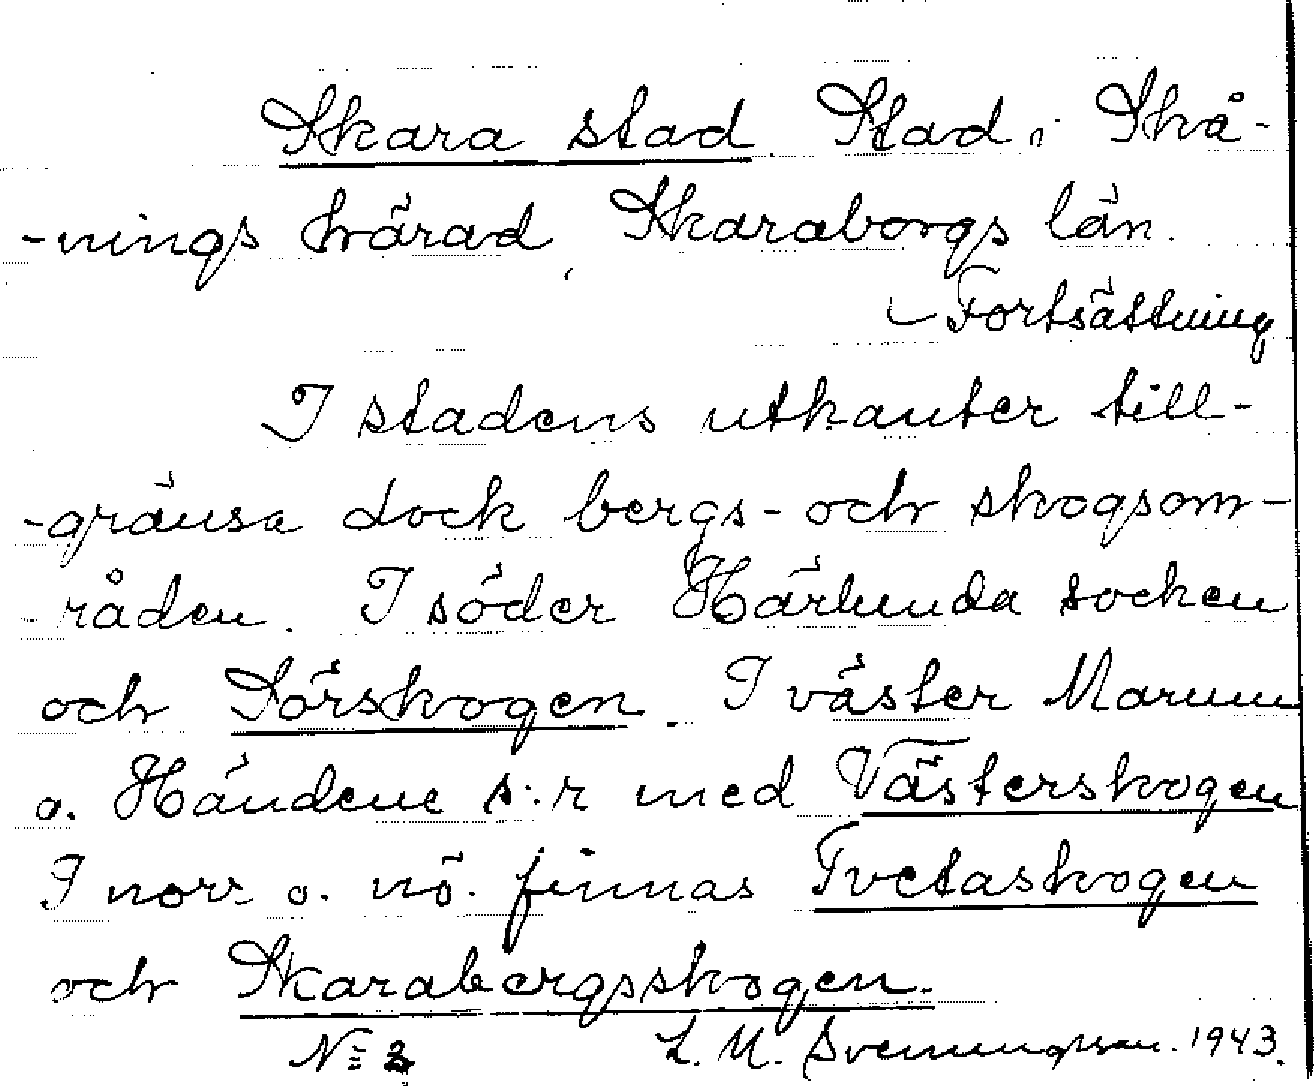 Skara stad. Stad i Skå-
-nings härad, Skaraborgs län.
Fortsättning
I stadens utkanter till-
-gränsa dock bergs- och skogsom-
-råden. I söder Härlunda socken
och Sörskogen. I väster Marum
o. Händene s:r med Västerskogen
I norr o. nö. finnas Tvetaskogen
och Skarabergsskogen.
N= 3 L. M. Svenungsson. 1943.